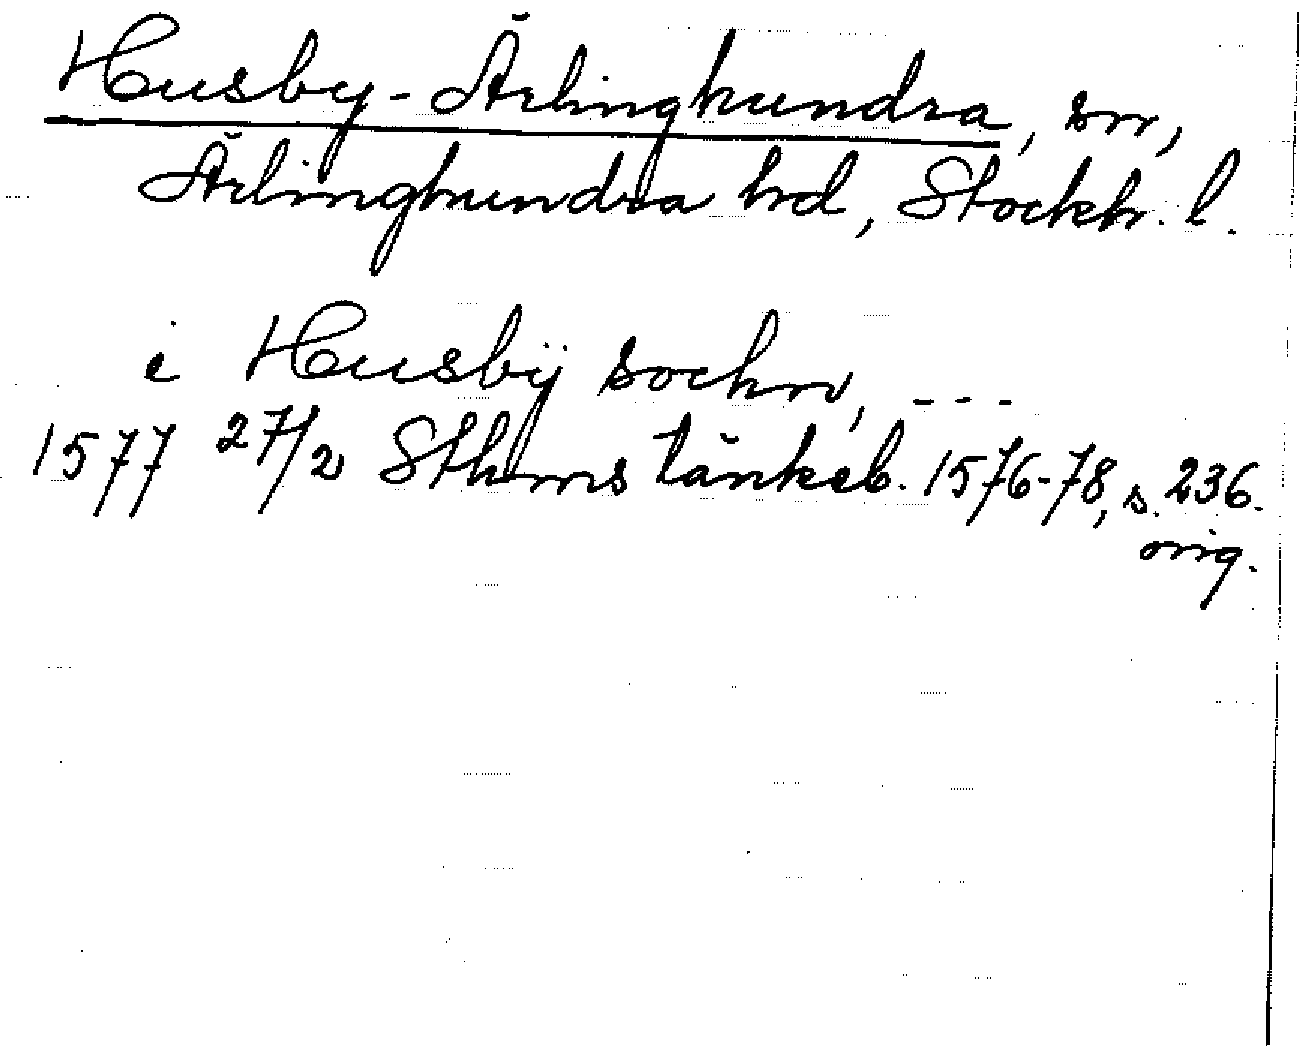 Husby-Ärlinghundra, sn,
Ärlinghundra hd, Stockh. l.
i Husbÿ sochn, ---
1577 27/2 Sthms tänkeb. 1576-78, s. 236.
orig.